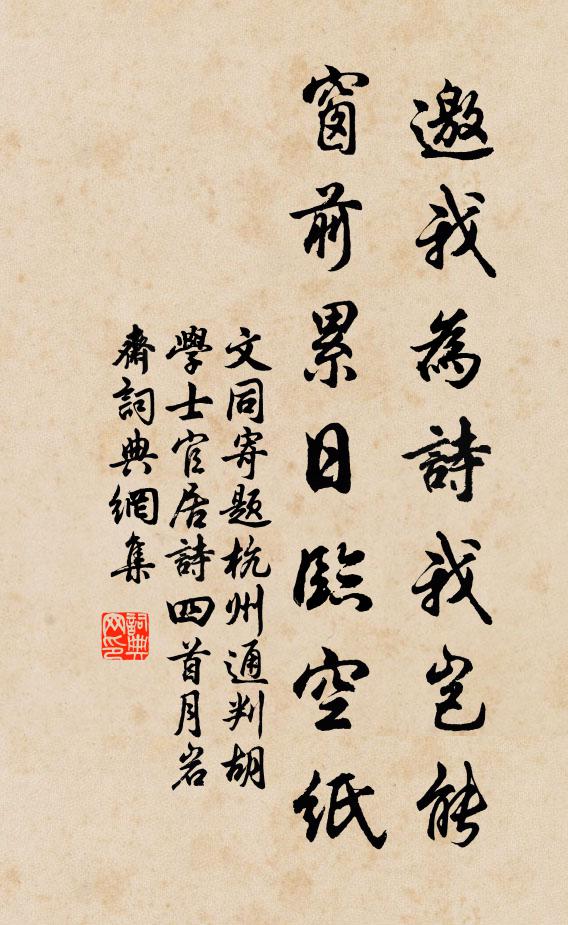 邀我為詩我豈能
窗前累日臨空紙
文同寄題杭州通判胡
學士官居詩四首月岩
齋詞典網集
詞典
网印